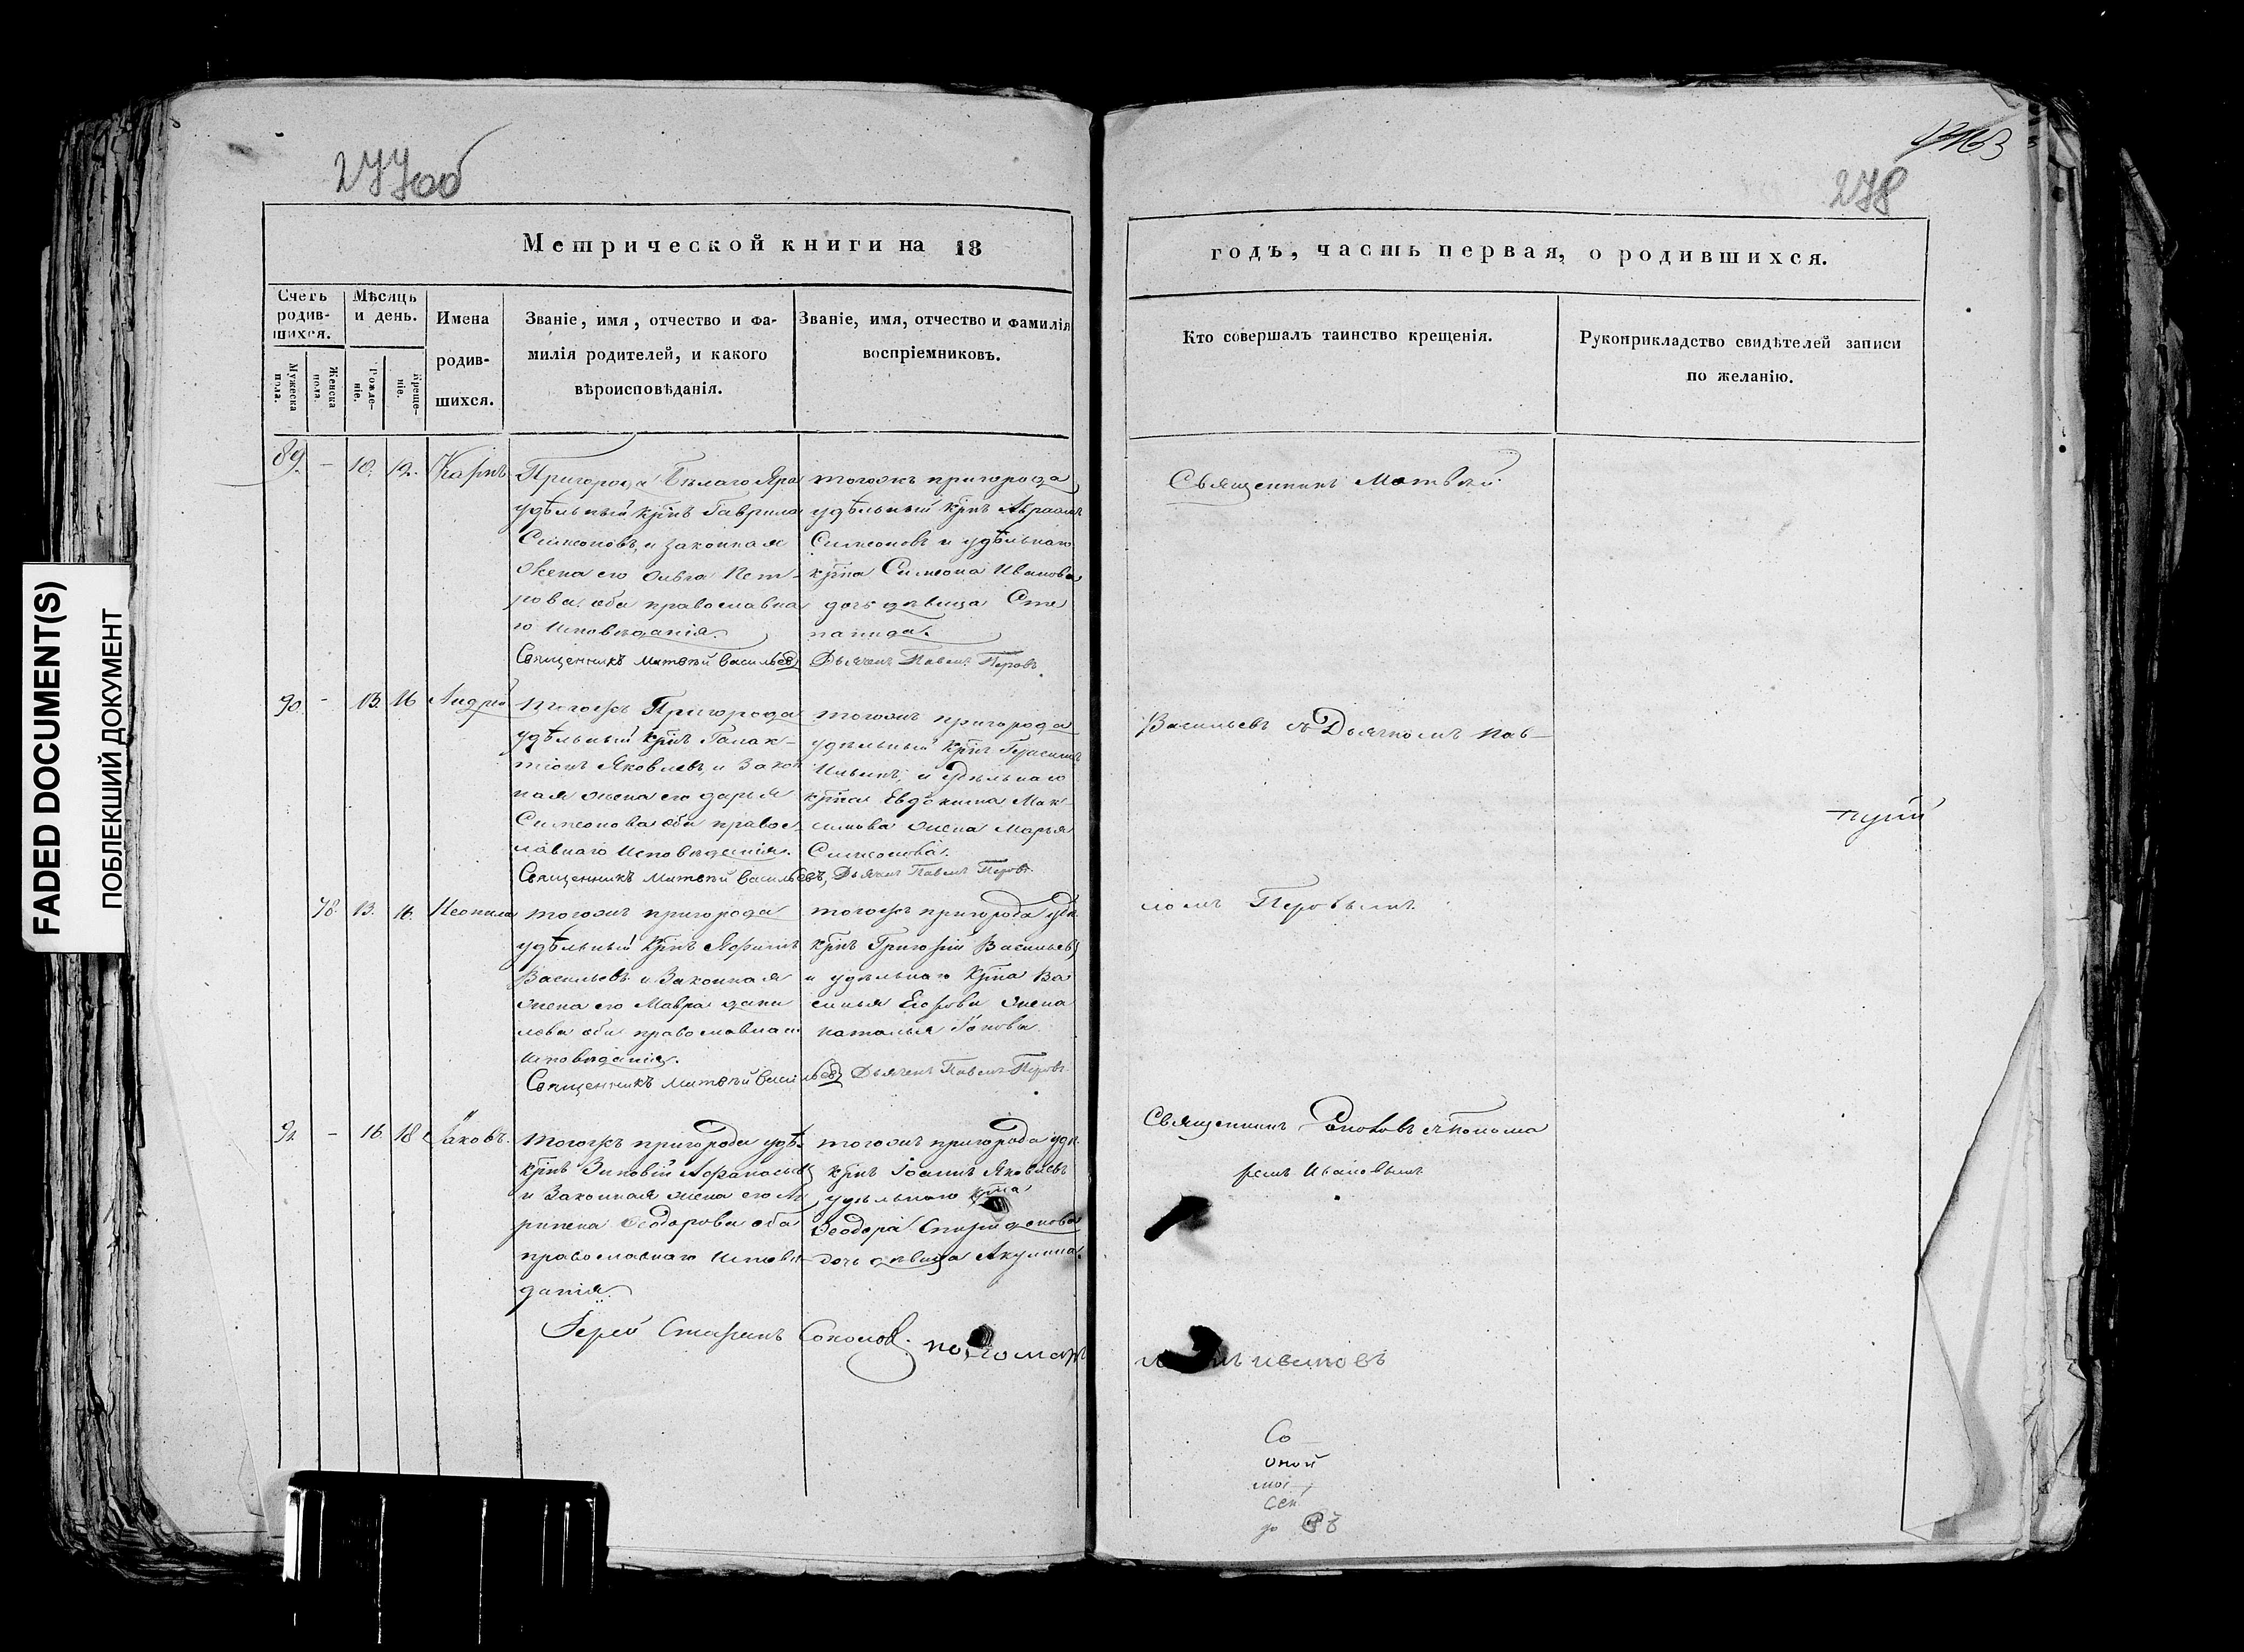 FADED DOCUMENT(S)
ПОБЛЕКШИЙ ДОКУМЕНТ
277об
Метрической книги на 18
Счетъ родив-шихся.
Мѣсяцъ и день.
Имена родив-шихся.
Званіе, имя, отчество и фа-
милія родителей, и какого
вѣроисповѣданія.
Званіе, имя, отчество и фамилія
воспріемниковъ.
Мужеска пола.
Женска пола.
Рожде-ніе.
Креще-ніе.
89. - 10. 12. Карпъ
Пригорода Бѣлаго Яра
удѣльный крінъ Гаврила
Симеоновъ, и законная
жена его Ольга Пет-
рова, оба православна
го исповѣданія.
Священникъ Матвѣй Васильев
тогожъ пригорода
удѣльный крінъ Авраамъ
Симеоновъ и удѣльнаго
кріна Симеона Иванова
дочь дѣвица Сте
панида.
Дьячекъ Павелъ Перовъ.
90. - 13. 16 Андрей
Тогожъ Пригорода
удѣльный крінъ Галак-
тіонъ Яковлевъ, и закон
ная жена его Дарья
Симеонова оба правос-
лавнаго исповѣданія.
Священникъ Матвѣй Васильевъ,
тогожъ пригорода
удѣльный крінъ Герасимъ
Ильинъ, и удѣльнаго
кріна Евдокима Мак-
симова жена Марья
Симеонова.
Дьячекъ Павелъ Перовъ.
78. 13. 16. Неонила
тогожъ пригорода
удѣльный крінъ
Васильевъ и законная
жена его Мавра Дани
лова оба православнаго
исповѣданія.
Священникъ Матвѣй Васильев
тогожъ пригорода удѣ.
крінъ Григорій Васильев
и удѣльнаго кріна Ва
силья Егорова жена
Наталья
Дьячекъ Павелъ Перовъ
91. - 16 18 Іаковъ.
Тогожъ пригорода удѣ.
крінъ Зиновій Афанасьев
и законная жена его А
рипена Феодорова оба
православнаго исповѣ-
данія.
Іерей Стефанъ Соколов.
тогожъ пригорода удѣ.
крінъ Іоаннъ Яковлевъ
удѣльнаго кріна
Феодора Спиридонова
дочь дѣвица Акулина.
278
годъ, часть первая, о родившихся.
Кто совершалъ таинство крещенія.
Рукоприкладство свидѣтелей записи
по желанію.
Священникъ Матвѣй
Васильевъ съ Дьячкомъ Пав-
ломъ Перовымъ.
Священникъ Соколовъ съ Понома
ремъ Ивановымъ
Ивановъ
Со
оной